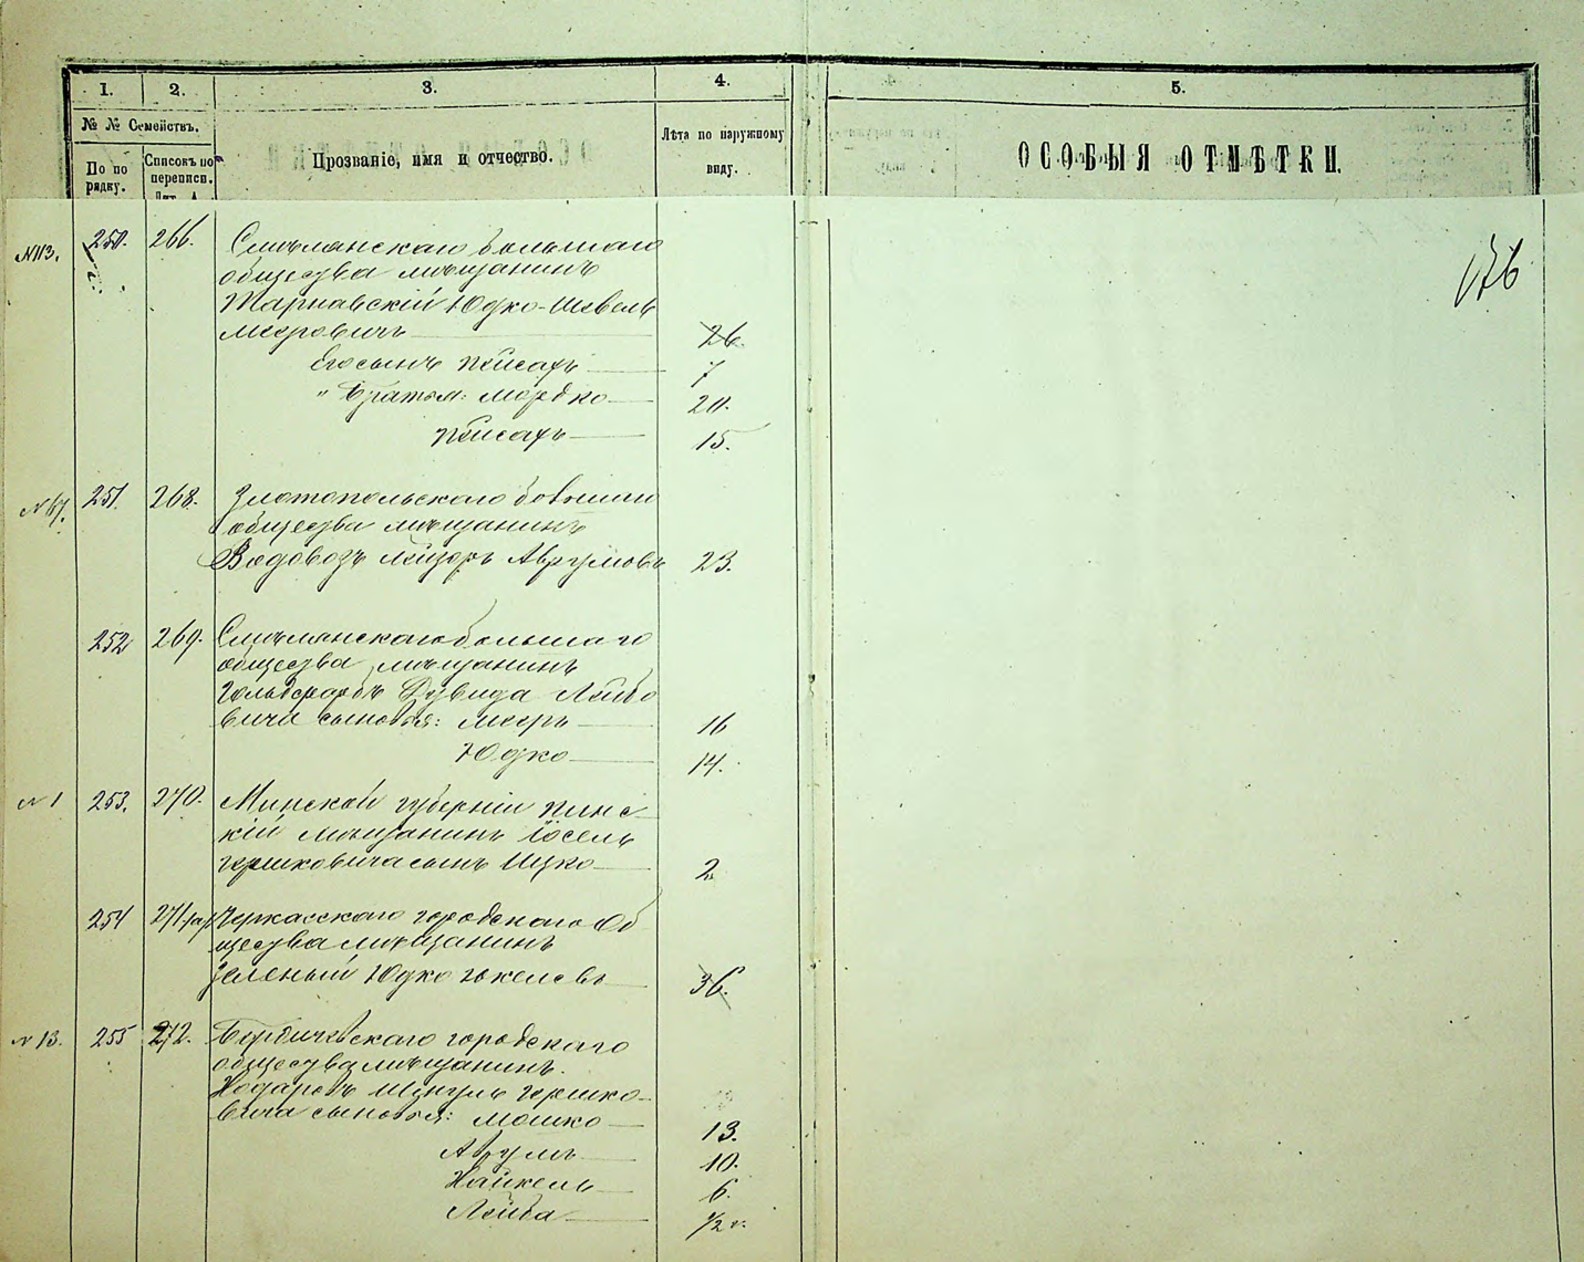 1. 2. 3. 4. 5.
№ № Семействъ.
По по рядку.
Списокъ по переписи.
Прозваніе, имя и отчество.
Лѣта по наружному виду.
ОСОБЫЯ ОТМѢТКИ.
176
N 113. 250. 266. Смѣлянскаго большаго
общества мѣщанинъ
Тарнавскій Юдко-Шевель
Мееровичъ 26.
Его сынъ Пейсахъ 7
" Братья: Мордко 20.
Пейсахъ 15.
N 67. 251. 268. Златопольскаго
общества мѣщанинъ
Водовозъ Лейзоръ Аврумовъ 23.
252 269. Смѣлянскаго большаго
общества мѣщанинъ
Гольдфарбъ Дувида Лейбо
вича сыновья: Мееръ 16
Юдко 14.
N 1 253. 270. Минской губерніи Пинс
кій мѣщанинъ Іосель
Гершковича сынъ Ицко 2
254 271 Черкасскаго городскаго Об
щества мѣщанинъ
Зеленый Юдко 36.
N 13. 255 272. Бердичевскаго городскаго
общества мѣщанинъ.
Гершко-
вича сыновья: Мошко 13.
Аврумъ 10.
Хайкель 6.
Лейба 1/2 г.